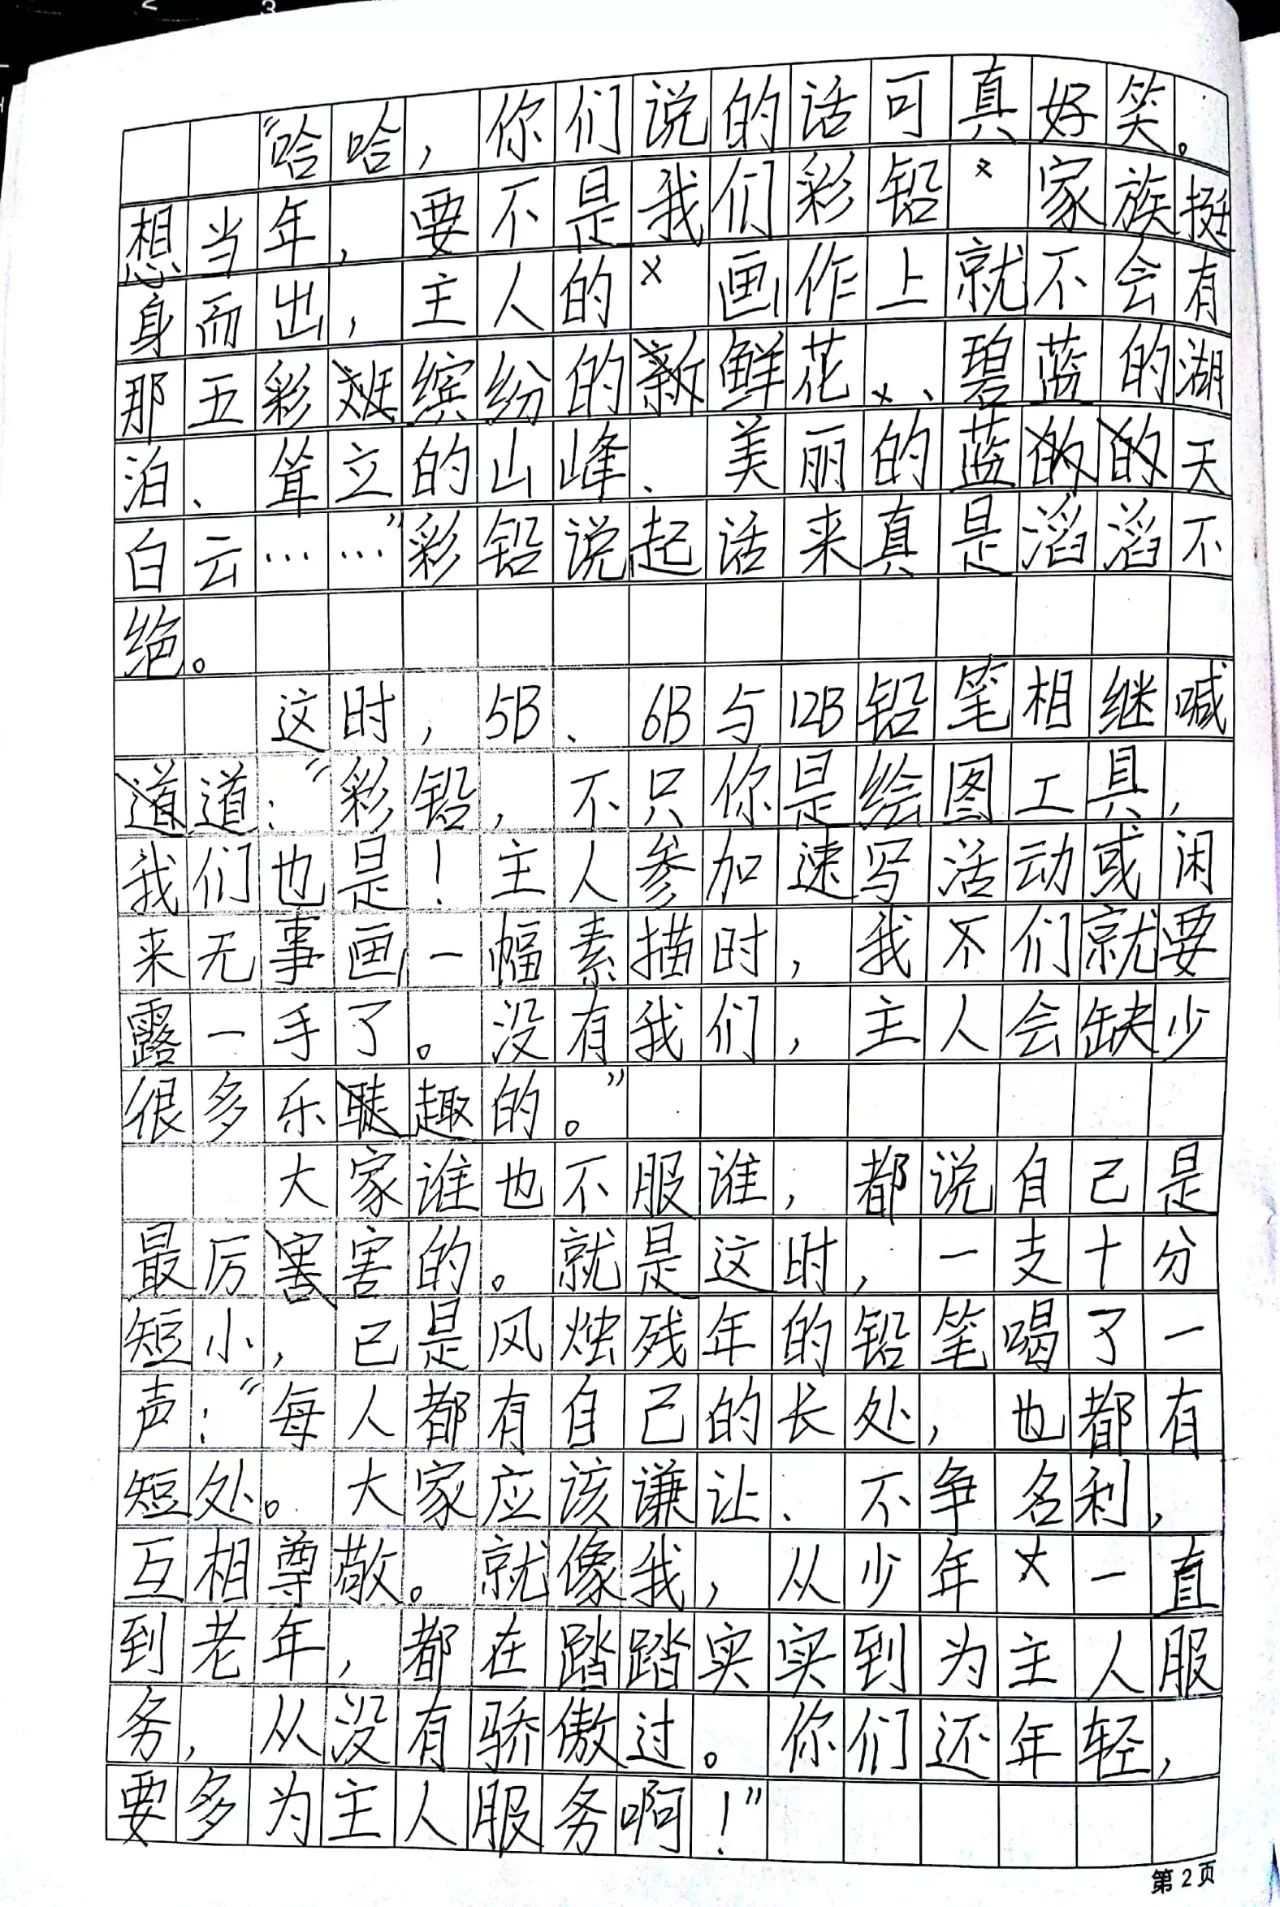 “哈哈，你们说的话可真好笑。
想当年，要不是我们彩铅家族挺
身而出，主人的画作上就不会有
那五彩缤纷的鲜花、碧蓝的湖
泊、耸立的山峰、美丽的蓝天
白云……”彩铅说起话来真是滔滔不
绝。
这时，5B、6B与12B铅笔相继喊
道：“彩铅，不只你是绘图工具，
我们也是！主人参加速写活动或闲
来无事画一幅素描时，我不们就要
露一手了。没有我们，主人会缺少
很多乐趣的。”
大家谁也不服谁，都说自己是
最厉害的。就是这时，一支十分
短小，已是风烛残年的铅笔喝了一
声：“每人都有自己的长处，也都有
短处。大家应该谦让、不争名利，
互相尊敬。就像我，从少年一直
到老年，都在踏踏实实到为主人服
务，从没有骄傲过。你们还年轻，
要多为主人服务啊！”
第2页